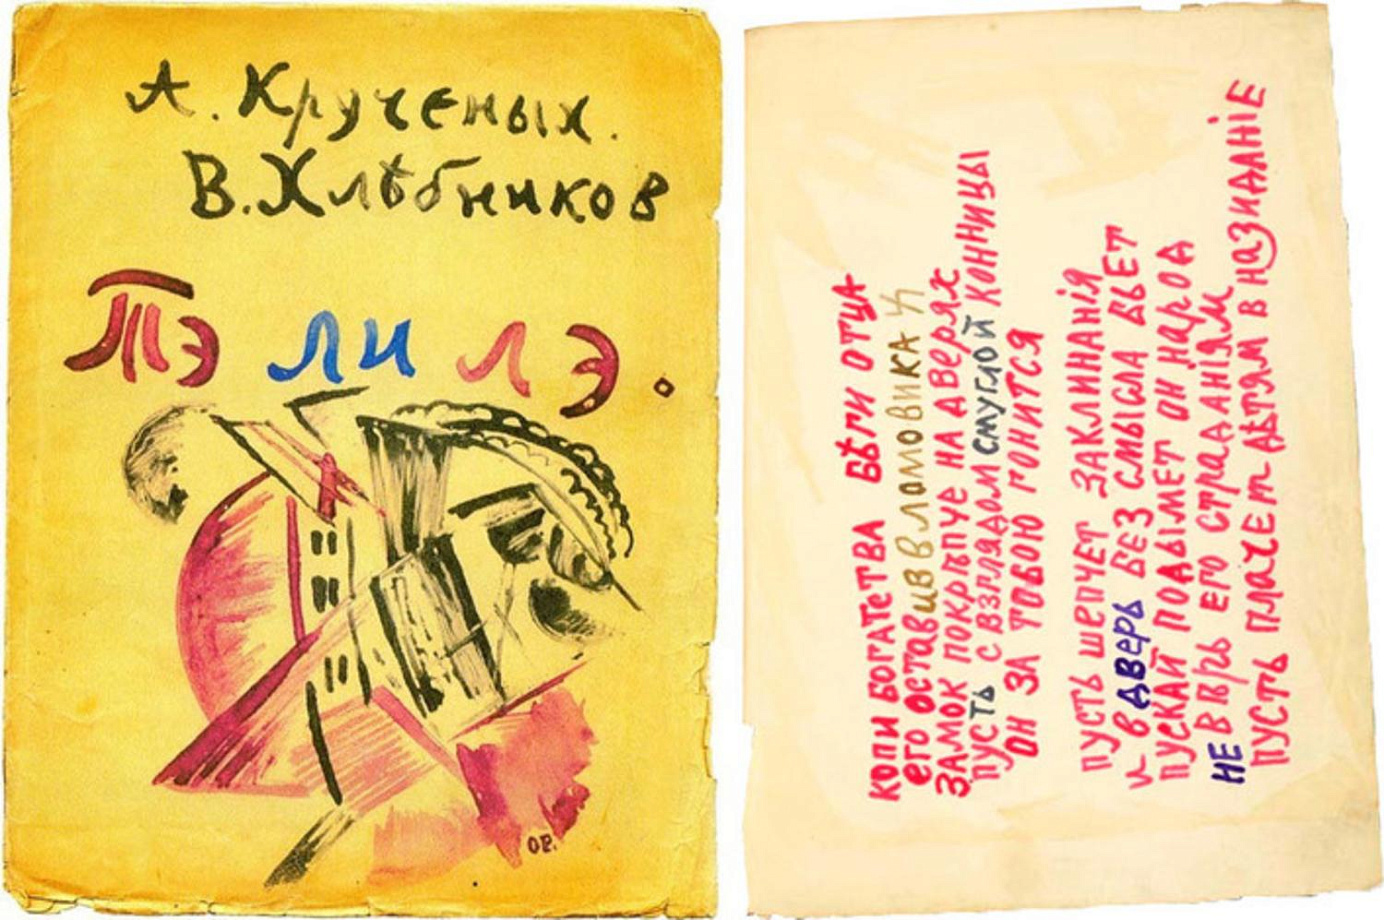 А. Крученых.
В. Хлѣбников
ТЭ ЛИ ЛЭ.
ОР.
КОПИ БОГАТЕТВА БѢГИ ОТЦА
ЕГО ОСТАВИВ В ЛОМОВИКАХ
ЗАМОК ПОКРѢПЧЕ НА ДВЕРЯХ
ПУСТЬ С ВЗГЛЯДОМ СМУГЛОЙ КОННИЦЫ
ОН ЗА ТОБОЮ ГОНИТСЯ
ПУСТЬ ШЕПЧЕТ ЗАКЛИНАНІЯ
И В ДВЕРЬ БЕЗ СМЫСЛА БЬЕТ
ПУСКАЙ ПОДЫМЕТ ОН НАРОД
НЕ ВѢРЬ ЕГО СТРАДАНІЯМ
ПУСТЬ ПЛАЧЕТ ДѢТЯМ В НАЗИДАНІЕ